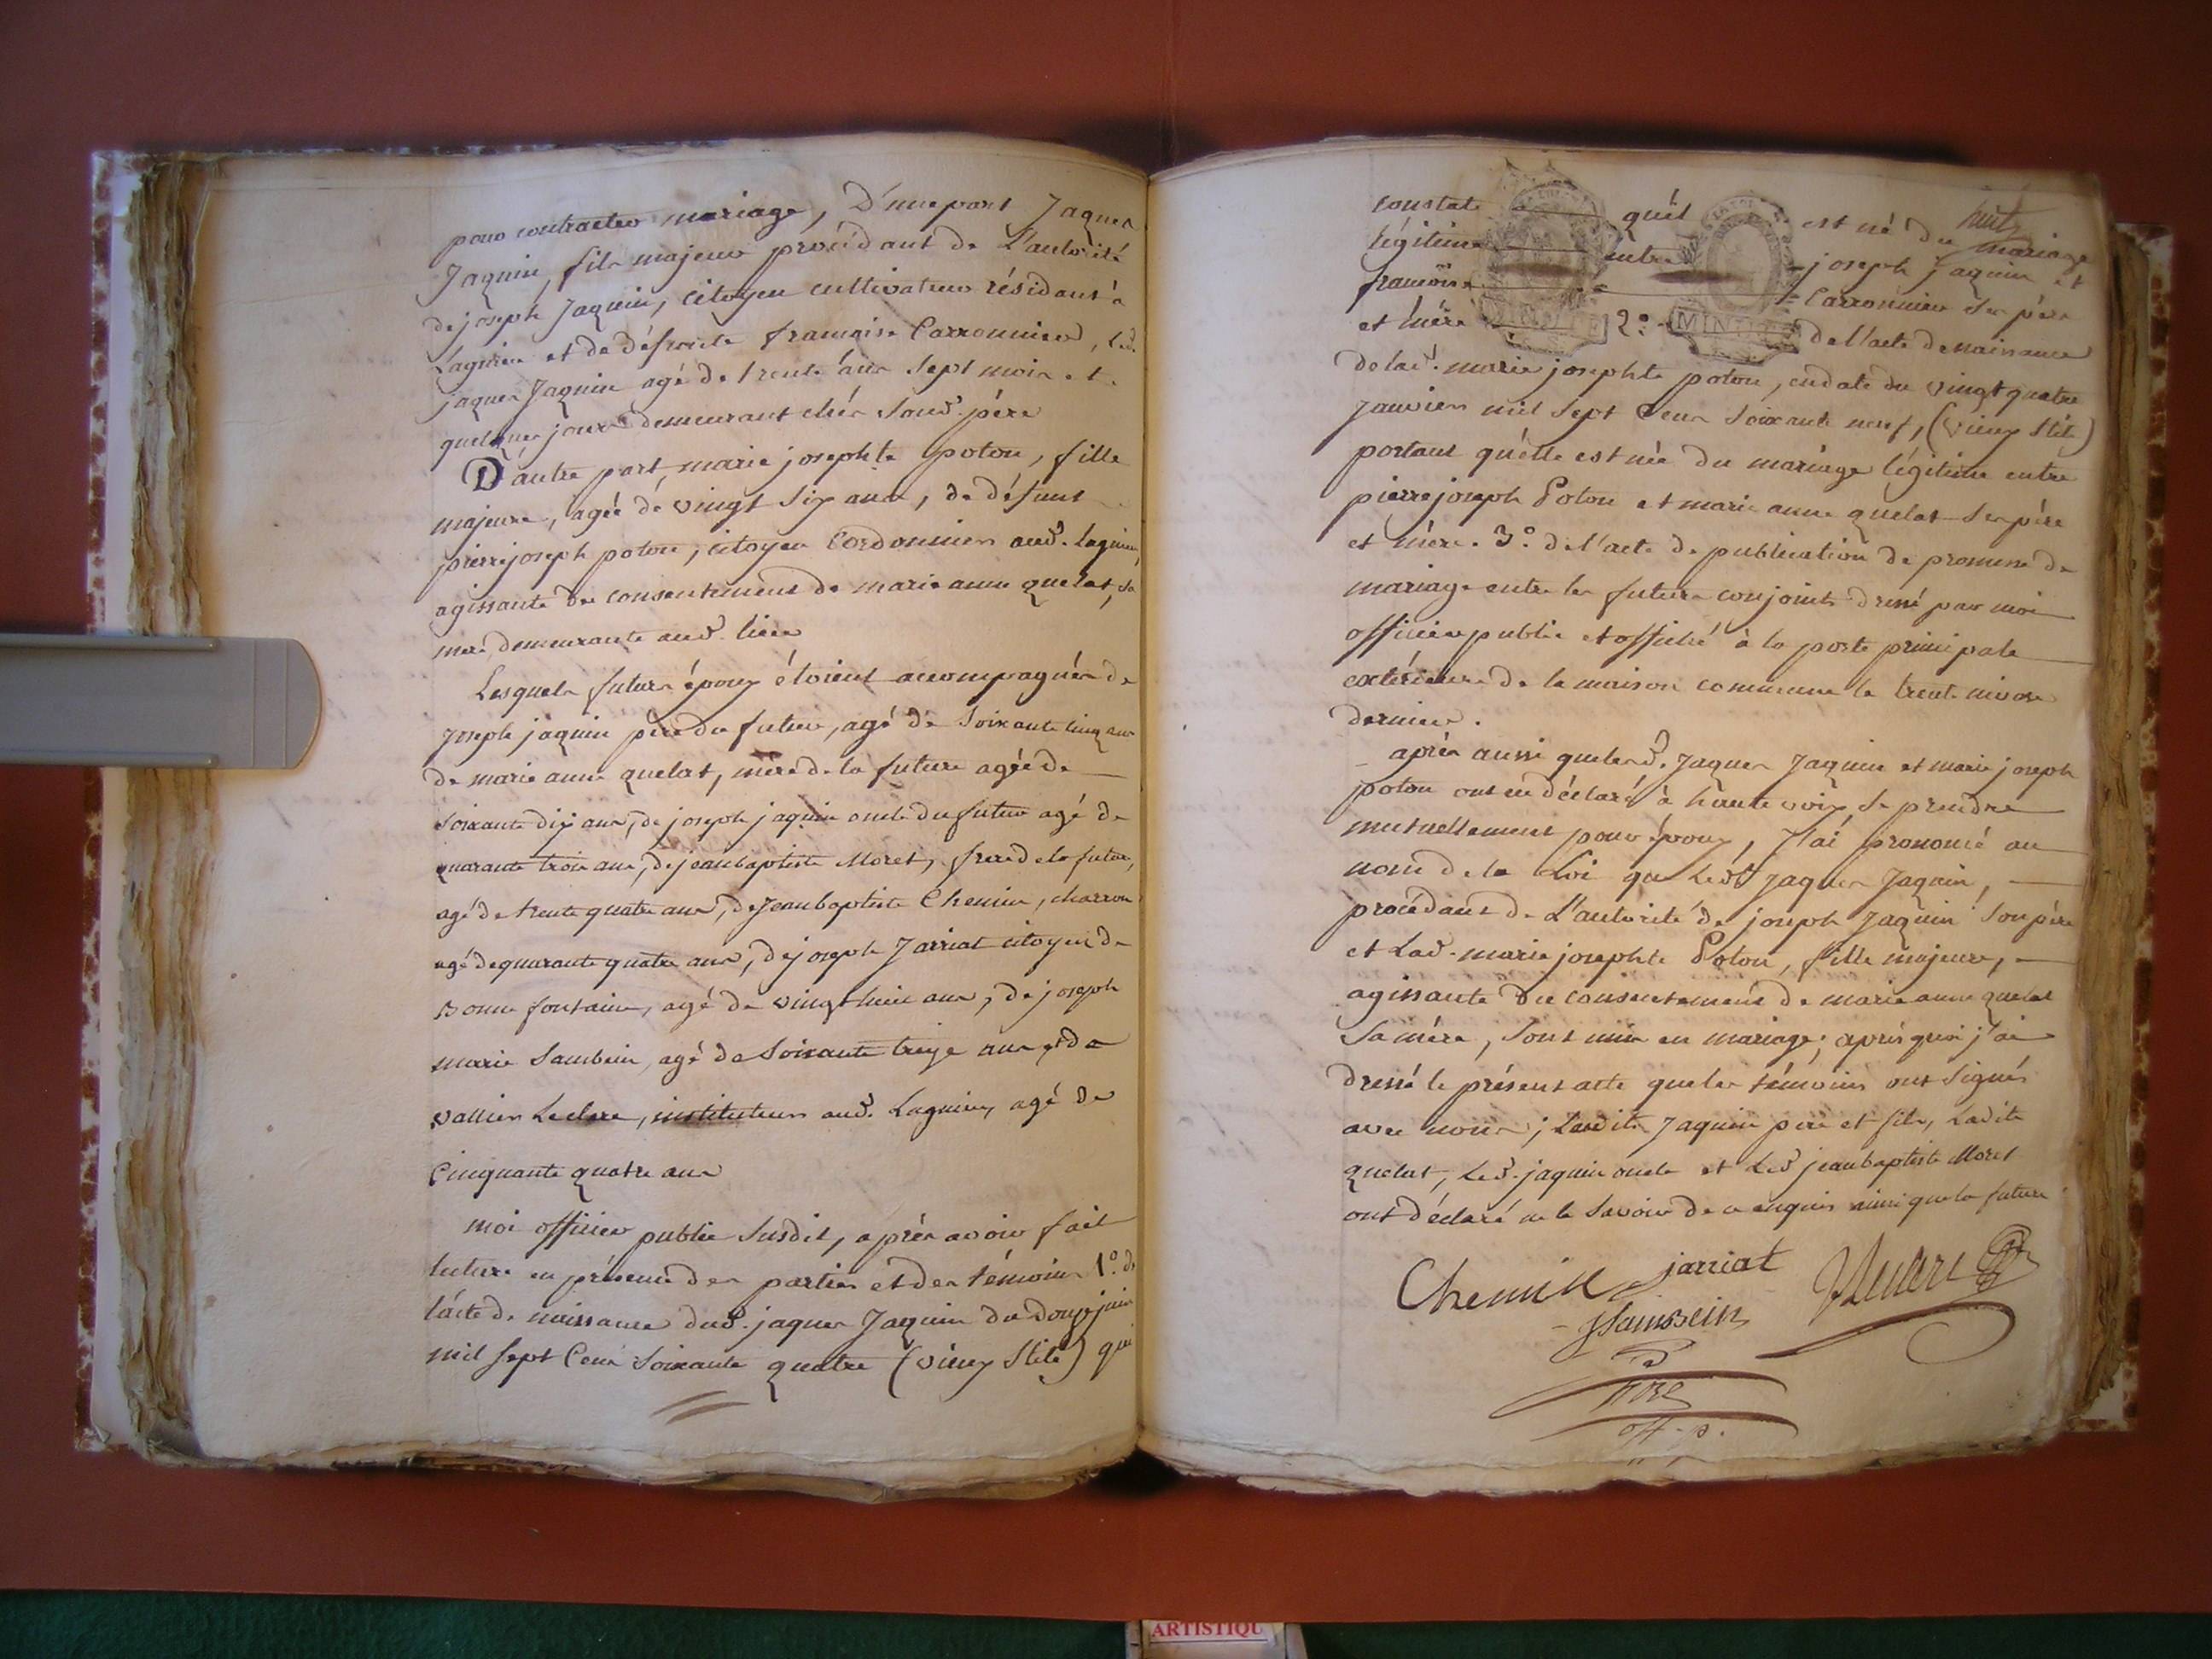 pour contracter mariage, D'une part Jaques
Jaquin, fils majeur procédant de L'autorité
de joseph Jaquin, citoyen cultivateur résidant à
Lagnieu et de défunte francoise Carronnier, led.
jaques Jaquin agé de trente ans sept mois et
quelques jours demeurant chés soud. père
D'autre part, marie josephte poton, fille
majeure, agée de vingt six ans, de défunt
pierre joseph poton, citoyen Cordonnier aud. Lagnieu,
agissante du consentement de marie anne quelat, sa
mere demeurante aud. lieu
Lesquels futurs époux étoient accompagnés de
joseph jaquin pere du futur, agé de soixante cinq ans
de marie anne quelat, mère de la future agée de
soixante dix ans, de joseph jaquin oncle du futur agé de
quarante trois ans, de jean baptiste Moret, frere de la future,
agé de trente quatre ans, de Jean baptiste Chemin, charron
agé de quarante quatre ans, de joseph Jarriat citoyen de
Bonne fontaine, agé de vingt huit ans, de joseph
marie Sambein, agé de soixante treize ans et de
vallier Leclerc, instituteur aud. Lagnieu, agé de
Cinquante quatre ans
moi officier public susdit, après avoir fait
lecture en présence des parties et des témoins 1°. de
lácte de naissance dud. jaques Jaquin du douze juin
mil sept Cent soixante quatre (vieux Stile) qui
huit
constate qu'il est né du mariage
légitime entre joseph jaquin et
francoise Carronnier ses père
et mère 2°. de l'acte de naissance
MINUTE
MINUTE
de lad. marie josephte poton, en date du vingt quatre
janvier mil sept Cent soixante neuf, (vieux Stile)
portant qu'elle est née du mariage légitime entre
pierre joseph Poton et marie anne quelat ses père
et mère. 3°. de l'acte de publication de promesse de
mariage entre les futurs conjoints dressé par moi
officier public et affiché à la porte principale
extérieure de la maison commune le trente nivose
dernier.
après aussi que lesd. Jaques Jaquin et marie joseph
poton ont eu déclaré à haute voix, se prendre
mutuellement pour époux, J'ai prononcé au
nom de la Loi que Led. Jaques Jaquin,
procédant de L'autorité de joseph Jaquin son père
et Lad. marie josephte Poton, fille majeure,
agissante du consentement de marie anne quelat
sa mère, sont unis en mariage; après quoi j'ai
dressé le présent acte que les témoins ont signés
avec nous; Lesdits Jaquin pere et fils, Ladite
quelat, Led. jaquin oncle et Led jean baptiste Moret
ont déclaré ne le savoir de ce enquis ainsi que la future
Chemin jarriat
JSambein
off. p.
ARTISTIQU